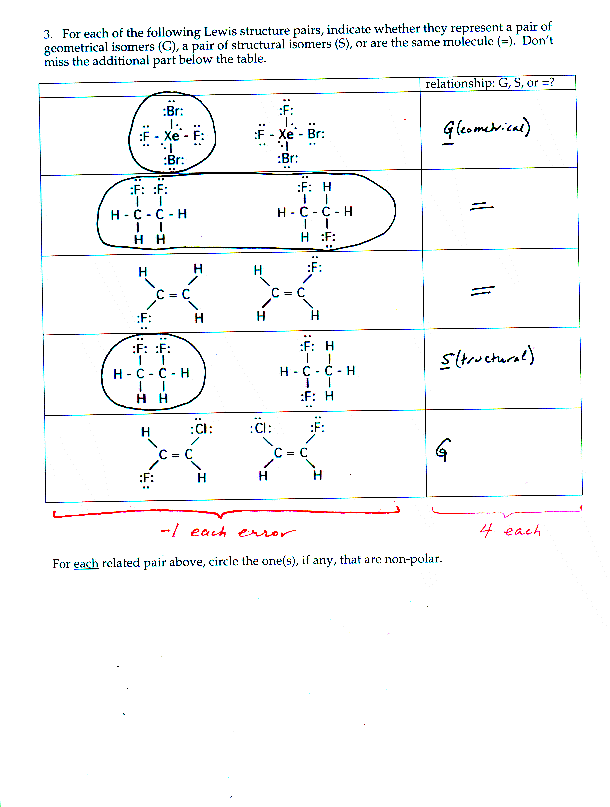 3. For each of the following Lewis structure pairs, indicate whether they represent a pair of
geometrical isomers (G), a pair of structural isomers (S), or are the same molecule (=). Don't
miss the additional part below the table.
relationship: G, S, or =?
:Br: :F:
:F - Xe - F: :F - Xe - Br: G(eometrical)
:Br: :Br:
:F: :F: :F: H
H - C - C - H H - C - C - H =
H H H :F:
H H H :F:
C = C C = C =
:F: H H H
:F: :F: :F: H
H - C - C - H H - C - C - H S(tructural)
H H :F: H
H :Cl: :Cl: :F:
C = C C = C G
:F: H H H
-1 each error 4 each
For each related pair above, circle the one(s), if any, that are non-polar.